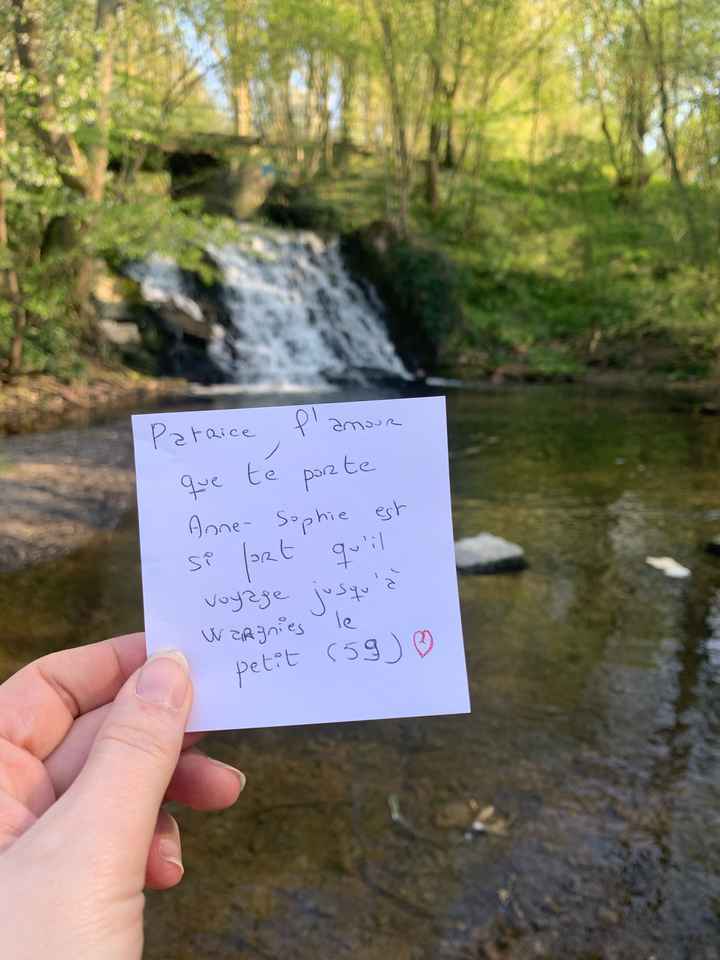 Patrice l'amour
que té porte
Anne-Sophie est
si fort qu'il
voyage jusqu'à
Wargnies le
petit (59)